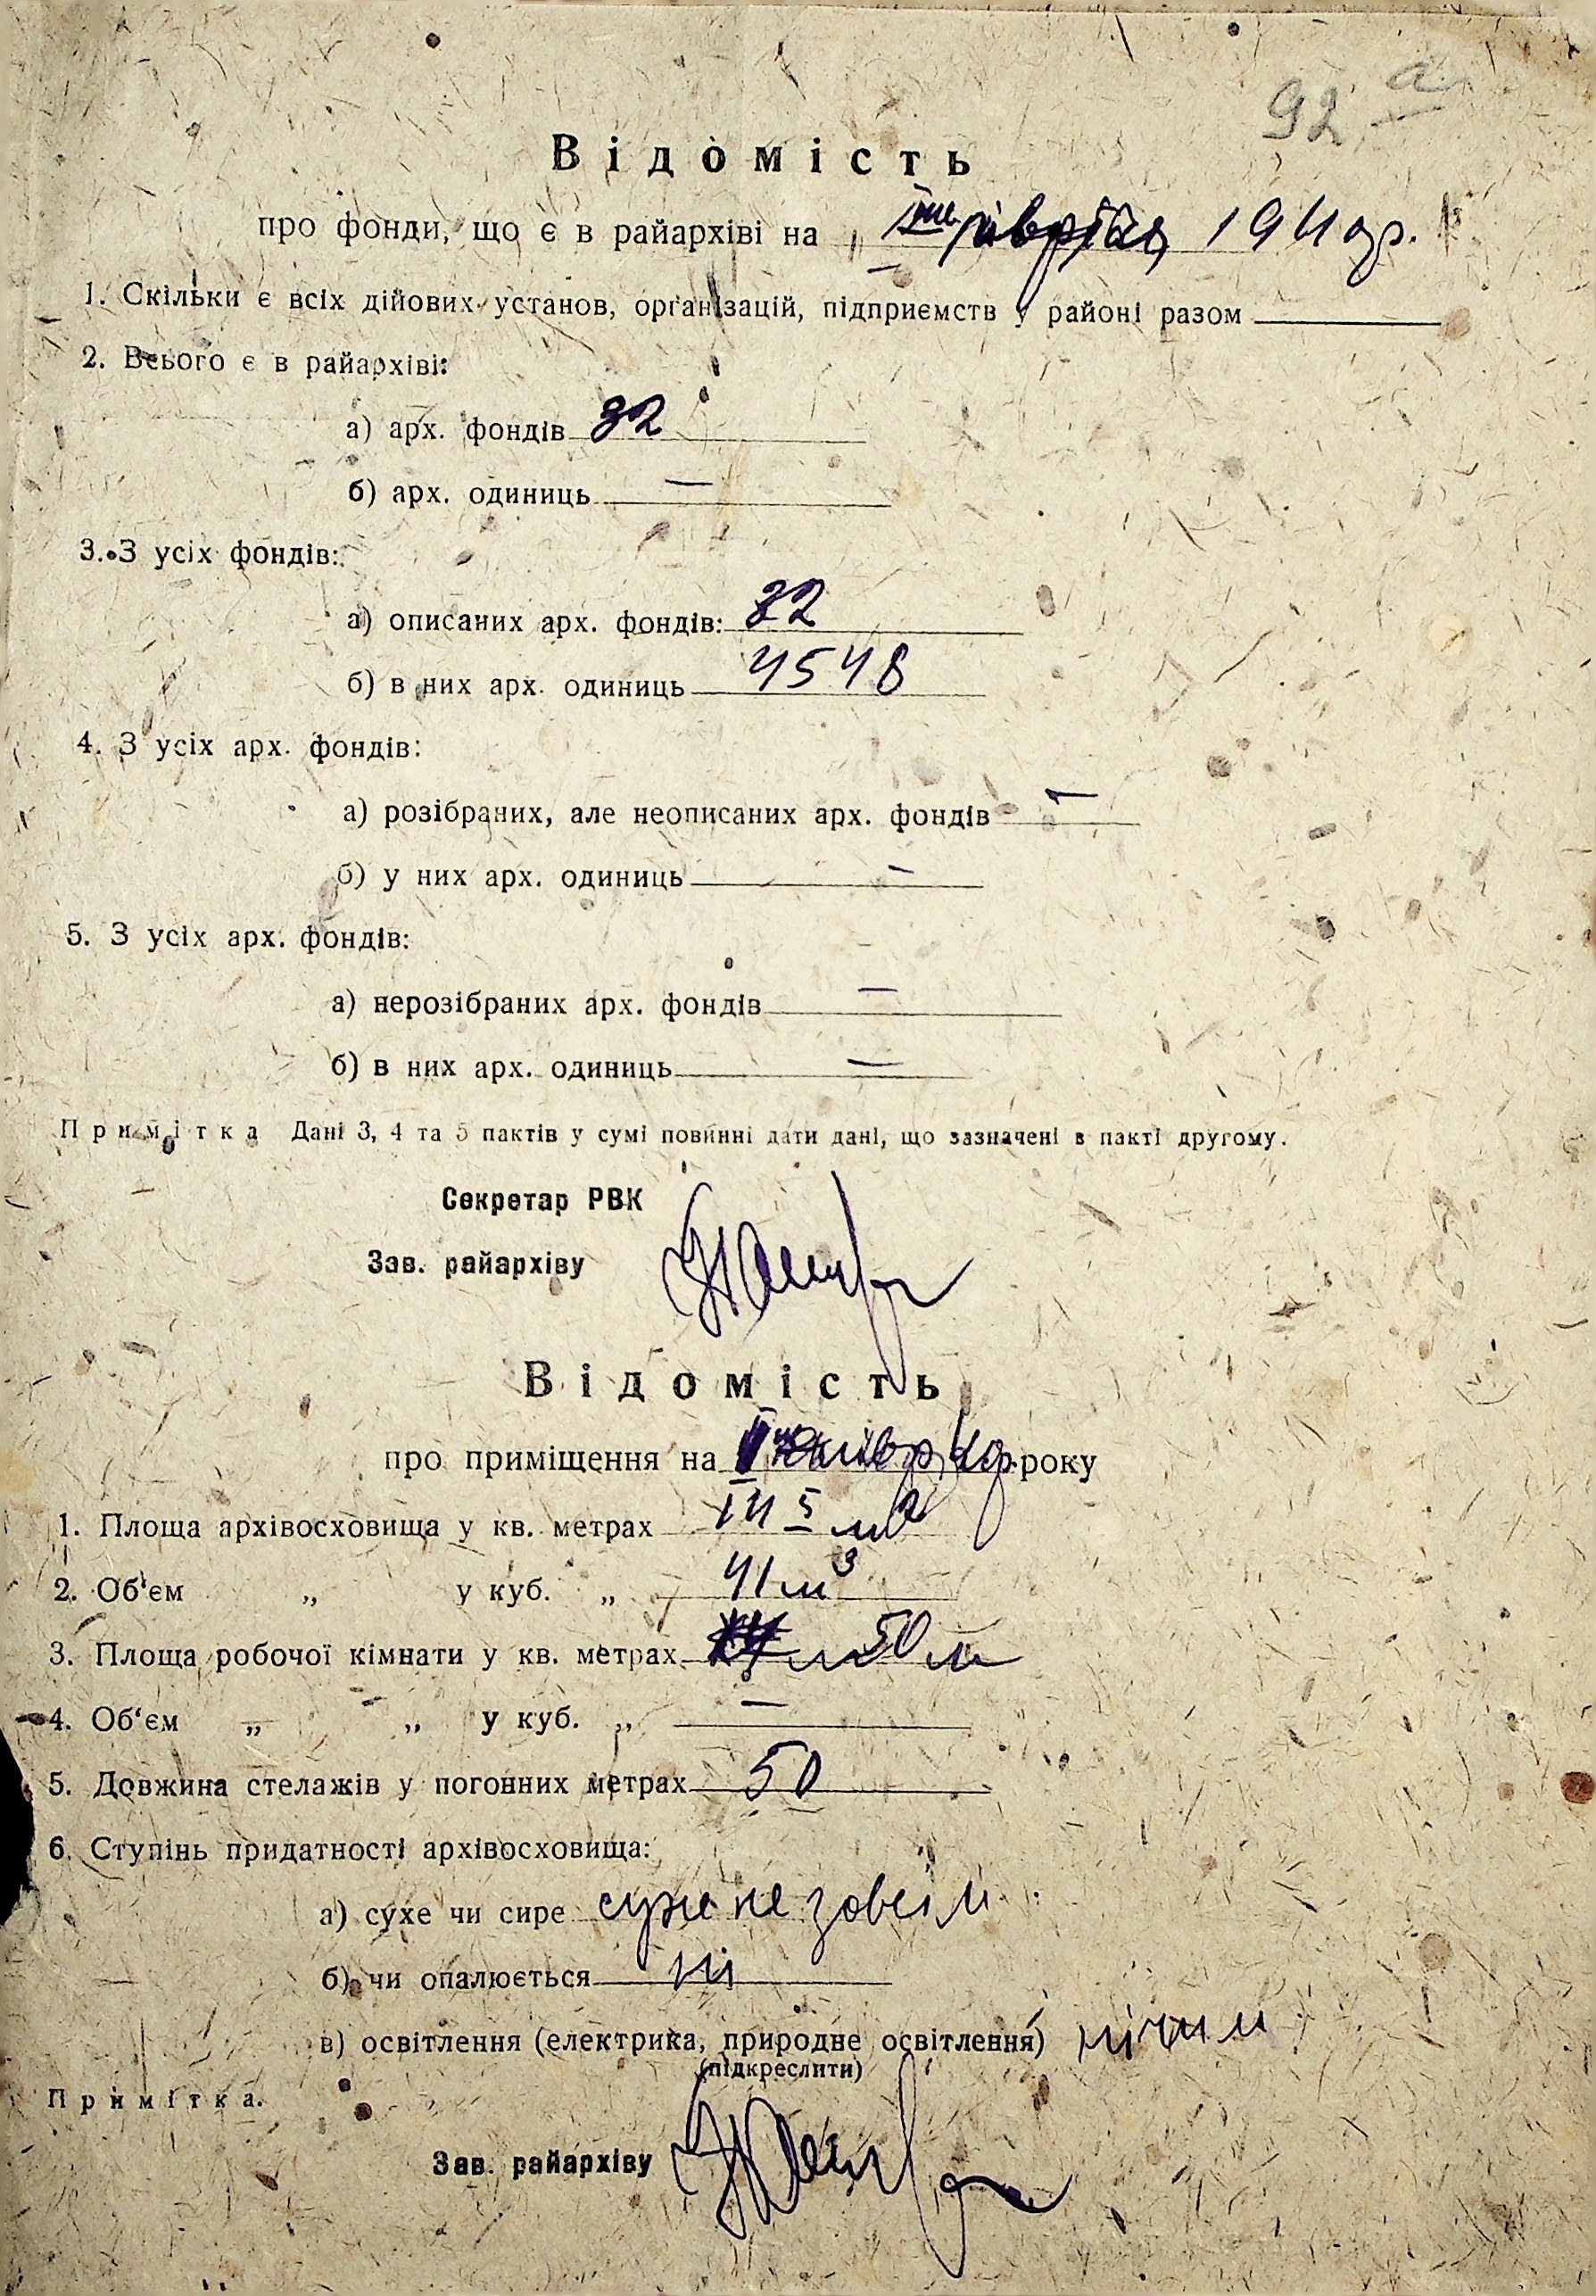 92 а
Відомість
про фонди, що є в райархіві на „ івріччя 1941 р.
1. Скільки є всіх дійових установ, організацій, підприємств у районі разом
2. Всього є в райархіві:
а) арх. фондів 32
б) арх. одиниць —
3. З усіх фондів:
а) описаних арх. фондів: 32
б) в них арх. одиниць 4548
4. З усіх арх. фондів:
а) розібраних, але неописаних арх. фондів —
б) у них арх. одиниць —
5. З усіх арх. фондів:
а) нерозібраних арх. фондів —
б) в них арх. одиниць —
Примітка Дані 3, 4 та 5 пактів у сумі повинні дати дані, що зазначені в пакті другому.
Секретар РВК
Зав. райархіву
Відомість
про приміщення на року
1. Площа архівосховища у кв. метрах 14 5 м2
2. Об'єм „ у куб. „ 41 м3
3. Площа робочої кімнати у кв. метрах 50 м
4. Об'єм „ „ у куб. „ —
5. Довжина стелажів у погонних метрах 50
6. Ступінь придатності архівосховища:
а) сухе чи сире сухе не зовсім
б) чи опалюється ні
в) освітлення (електрика, природне освітлення) нічим
(підкреслити)
Примітка.
Зав. райархіву